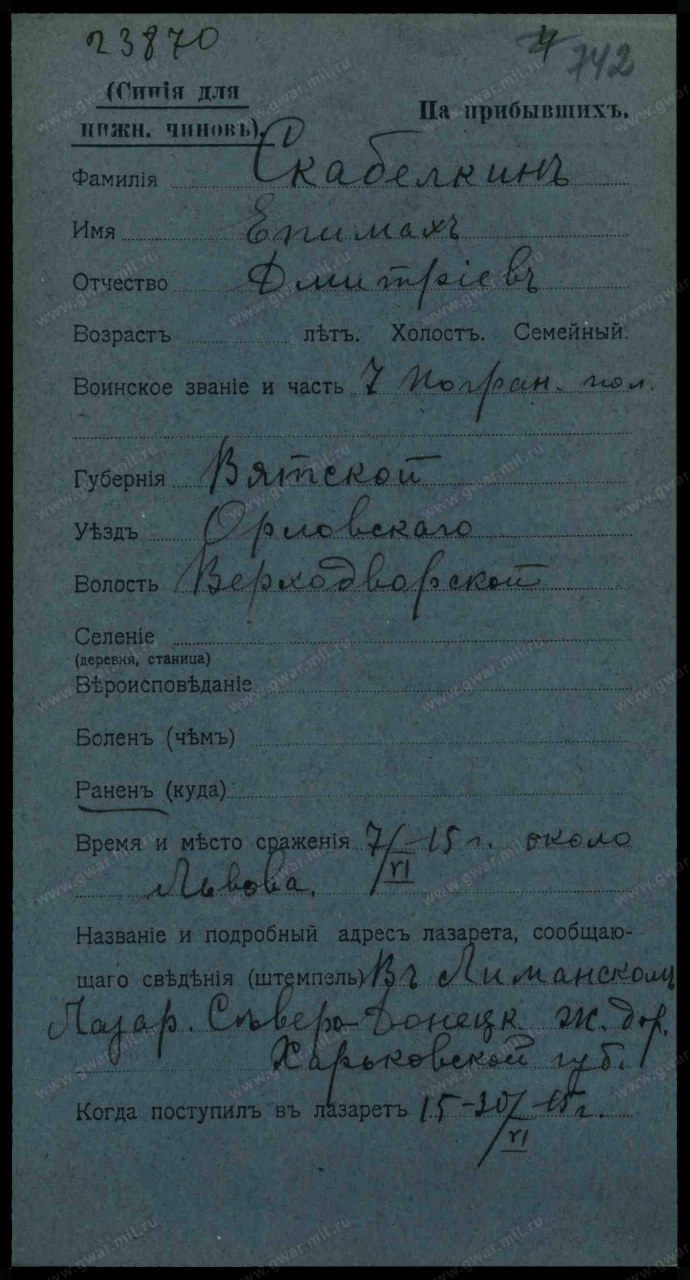 23870
4 742
(Синія для
нижн. чиновъ).
На прибывшихъ.
Фамилія Скабелкинъ
Имя Епимахъ
Отчество Дмитріевъ
Возрастъ лѣтъ. Холостъ. Семейный.
Воинское званіе и часть 7 погран. пол.
Губернія Вятской
Уѣздъ Орловскаго
Волость Верходворской
Селеніе
(деревня, станица)
Вѣроисповѣданіе
Боленъ (чѣмъ)
Раненъ (куда)
Время и мѣсто сраженія 7/VI–15 г. около
Львова.
Названіе и подробный адресъ лазарета, сообщаю-
щаго свѣдѣнія (штемпель) Въ Лиманскомъ
Лазар. Сѣверо-Донецк. Ж. дор.
Харьковской губ.
Когда поступилъ въ лазаретъ 15–30/VI–15 г.
www.gwar.mil.ru